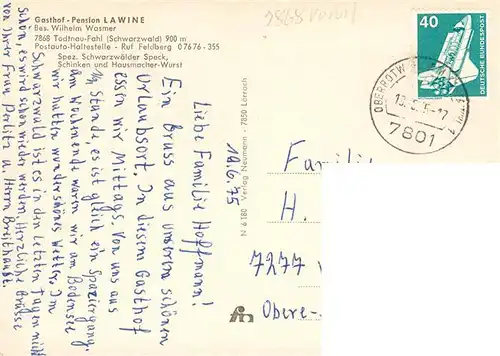 Gasthof - Pension LAWINE
Bes. Wilhelm Wasmer
7868 Todtnau-Fahl (Schwarzwald) 900 m
Postauto-Haltestelle - Ruf Feldberg 0 76 76 - 355
Spez. Schwarzwälder Speck,
Schinken und Hausmacher-Wurst
19.6.75
Liebe Familie Hoffmann!
Ein Gruss aus unserem schönen
Urlaubsort. In diesem Gasthof
essen wir Mittags. Von uns aus
Stunde, es ist gleich ein Spaziergang.
am Wochenende waren wir am Bodensee
wir hatten wunderschönes Wetter. Im
Schwarzwald ist es in den letzten Tagen nicht
schön, es wird schon wieder werden. Herzliche Grüsse
von Ihrer Frau Perlitz u. Herrn Breithaupt.
N 6180 Verlag Neumann - 7850 Lörrach
40
DEUTSCHE BUNDESPOST
7801
Familie
H.
7277
Obere-